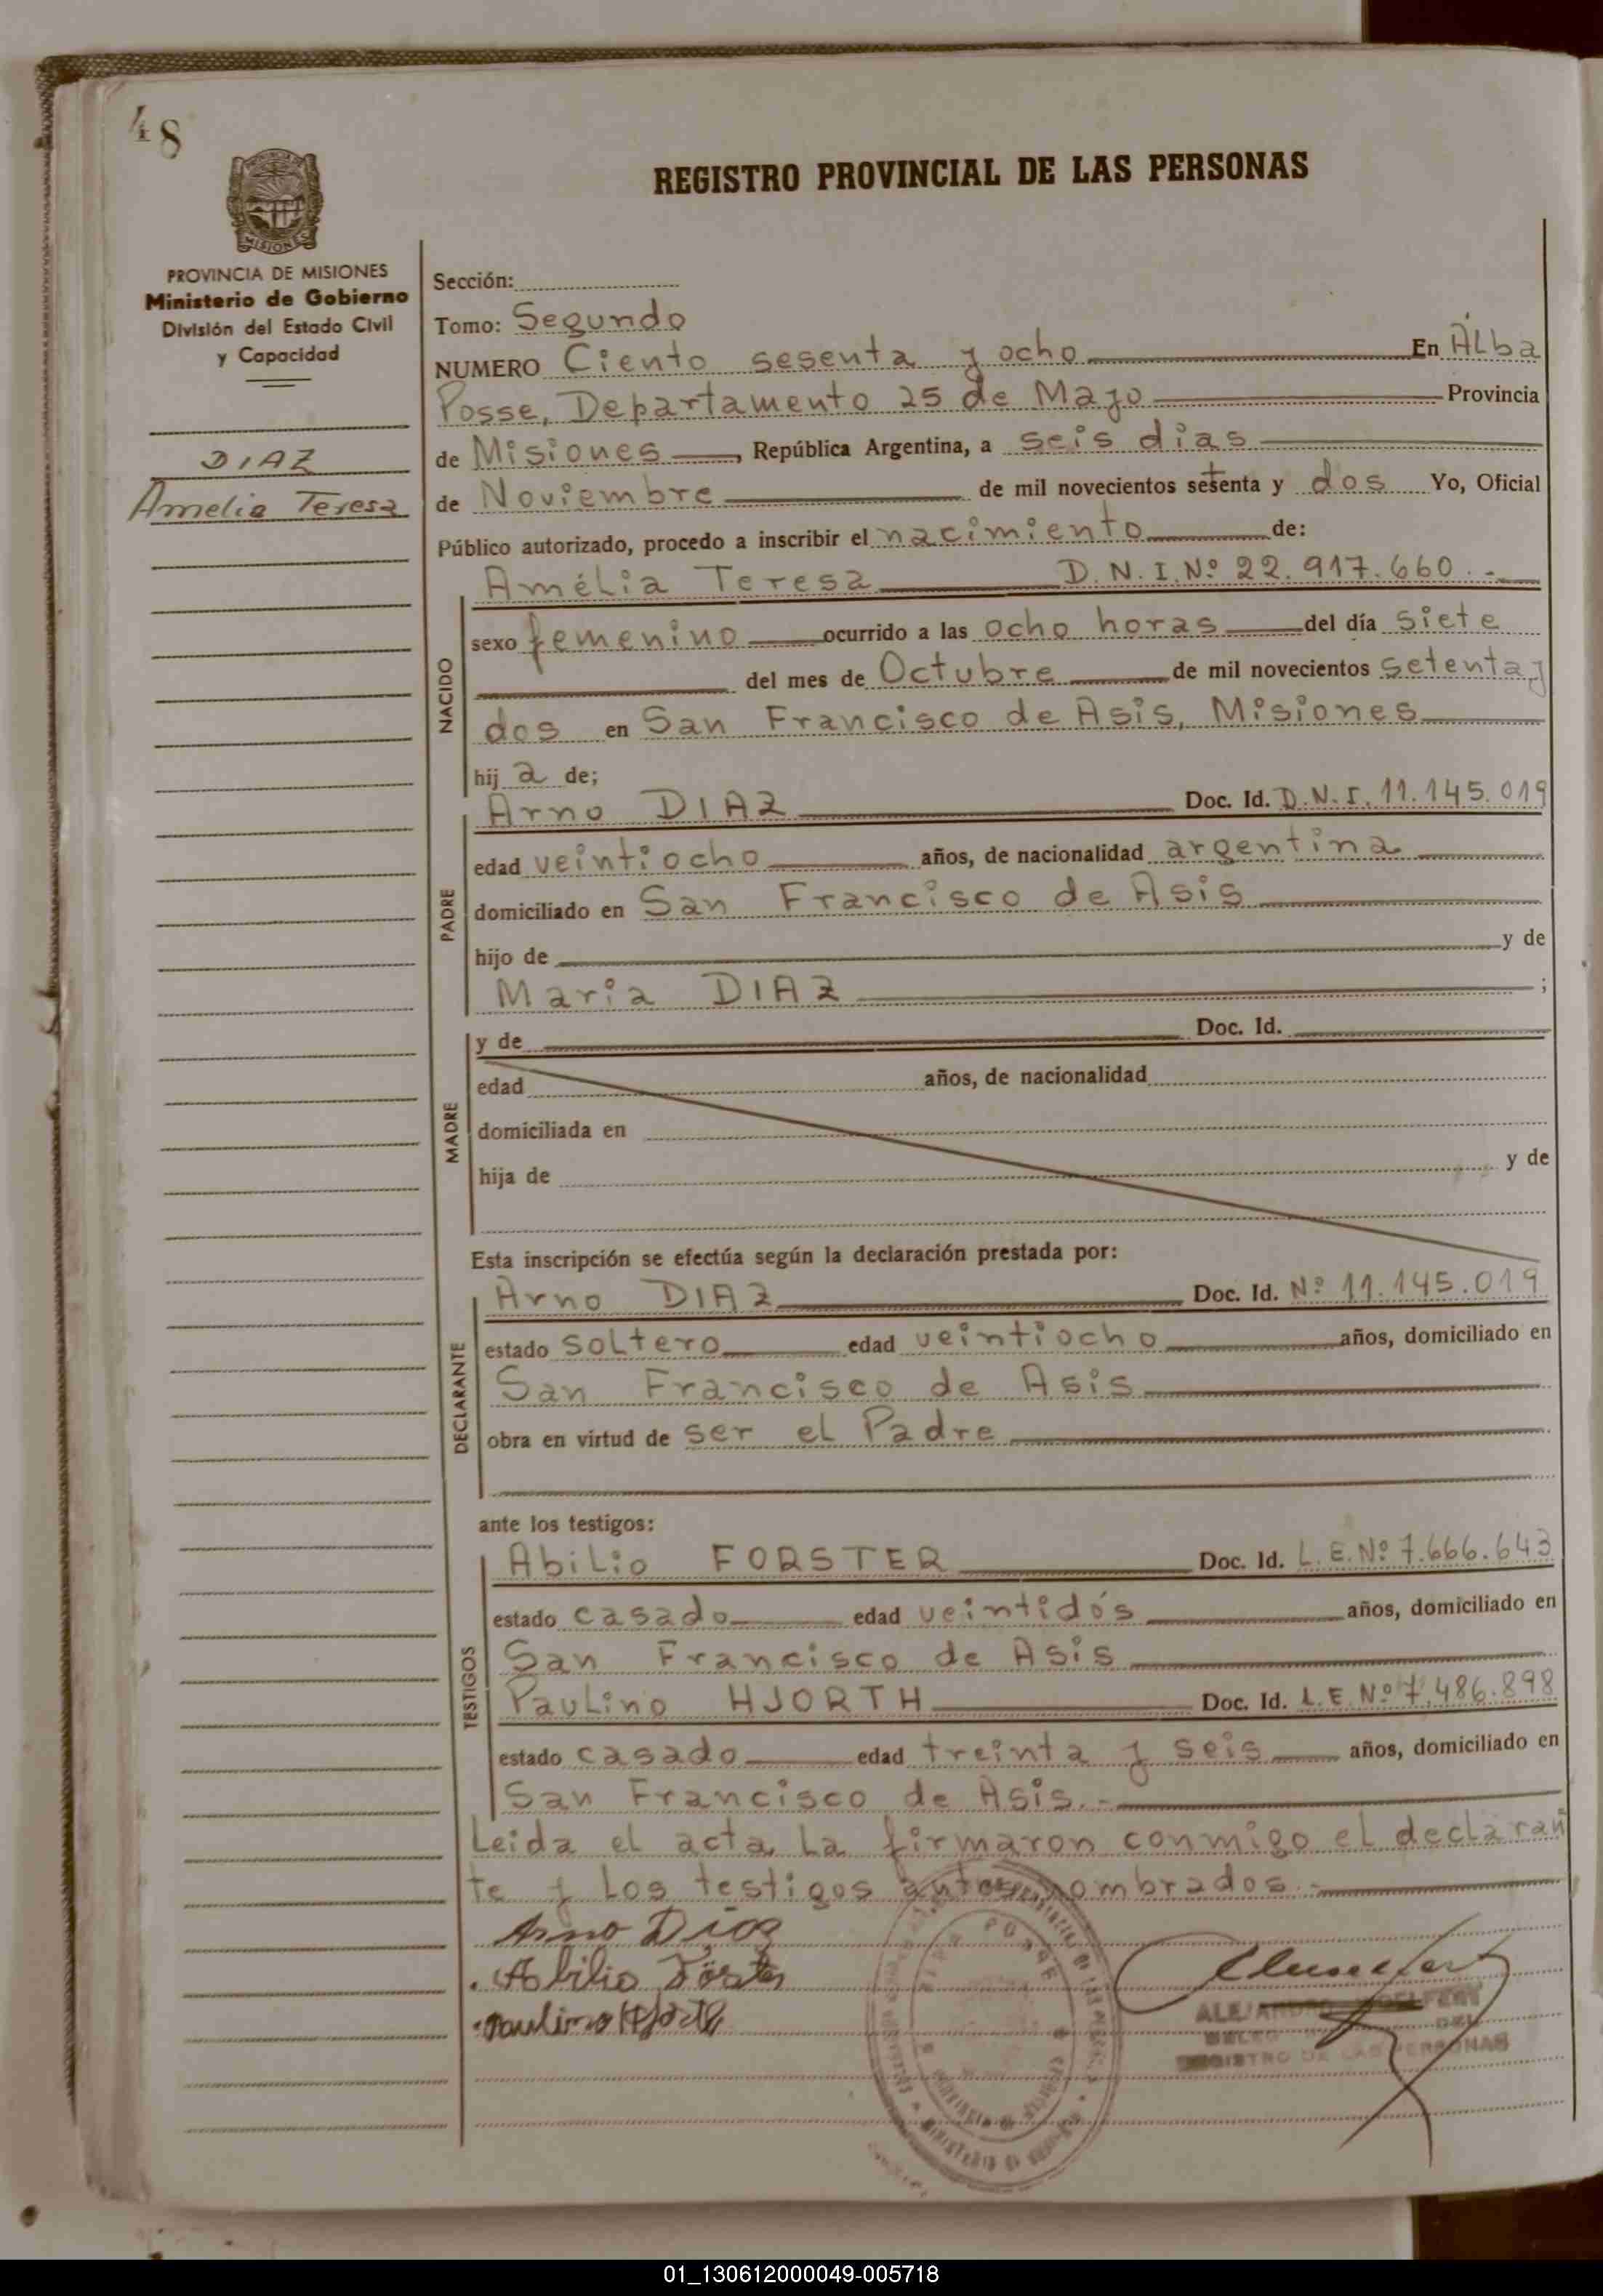 48
REGISTRO PROVINCIAL DE LAS PERSONAS
MISIONES
PROVINCIA DE MISIONES
Ministerio de Gobierno
División del Estado Civil
y Capacidad
DIAZ
Amelia Teresa
Sección:
Tomo: Segundo
NUMERO Ciento sesenta y ocho En Alba
Posse, Departamento 25 de Mayo Provincia
de Misiones, República Argentina, a seis dias
de Noviembre de mil novecientos setenta y dos Yo, Oficial
Público autorizado, procedo a inscribir el nacimiento de:
NACIDO
Amélia Teresa D.N.I.Nº 22.917.660.-
sexo femenino ocurrido a las ocho horas del día siete
del mes de Octubre de mil novecientos setenta y
dos en San Francisco de Asis, Misiones
hij a de;
PADRE
Arno DIAZ Doc. Id. D.N.I. 11.145.019
edad veintiocho años, de nacionalidad argentina
domiciliado en San Francisco de Asis
hijo de y de
Maria DIAZ ;
MADRE
y de Doc. Id.
edad años, de nacionalidad
domiciliada en
hija de y de
Esta inscripción se efectúa según la declaración prestada por:
DECLARANTE
Arno DIAZ Doc. Id. Nº 11.145.019
estado soltero edad veintiocho años, domiciliado en
San Francisco de Asis
obra en virtud de ser el Padre
ante los testigos:
TESTIGOS
Abilio FORSTER Doc. Id. L.E.Nº 7.666.643
estado casado edad veintidós años, domiciliado en
San Francisco de Asis
Paulino HJORTH Doc. Id. L.E.Nº 7.486.898
estado casado edad treinta y seis años, domiciliado en
San Francisco de Asis.-
Leida el acta, la firmaron conmigo el declaran
te y los testigos antes nombrados.-
Arno Diaz
Abilio Förster
Paulino Hjorth
ALEJANDRO
DEL
REGISTRO DE LAS PERSONAS
01_130612000049-005718